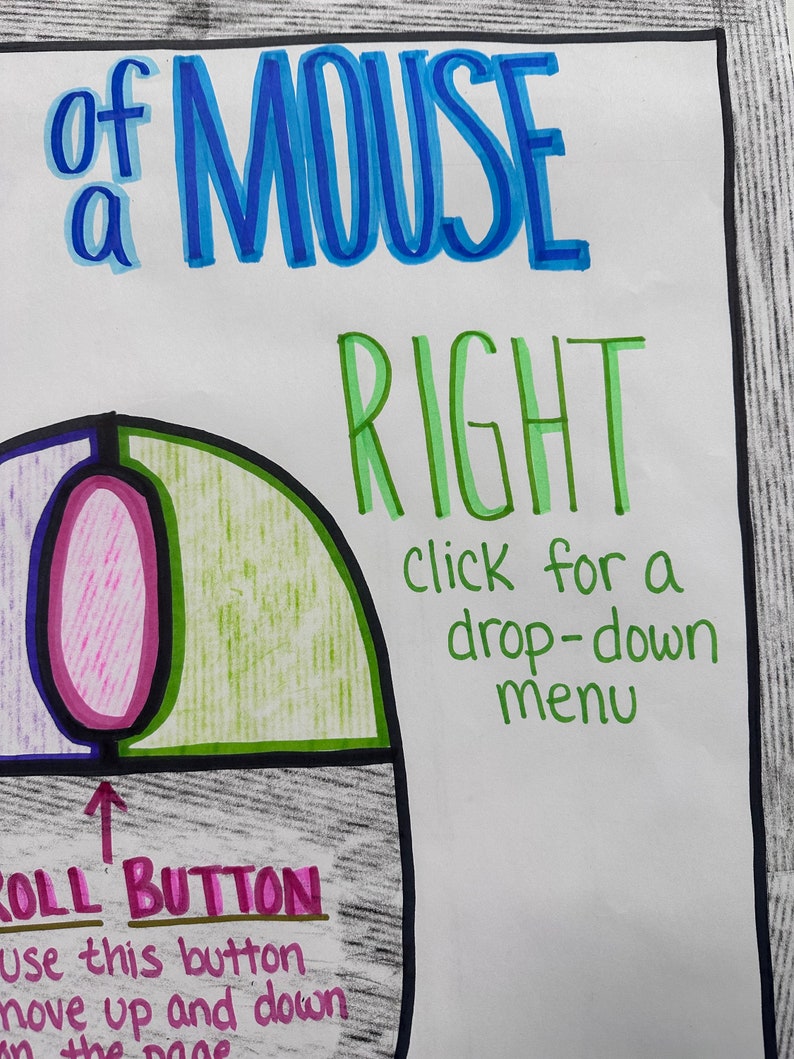 of
a MOUSE
RIGHT
click for a
drop-down
menu
ROLL BUTTON
use this button
move up and down
on the page